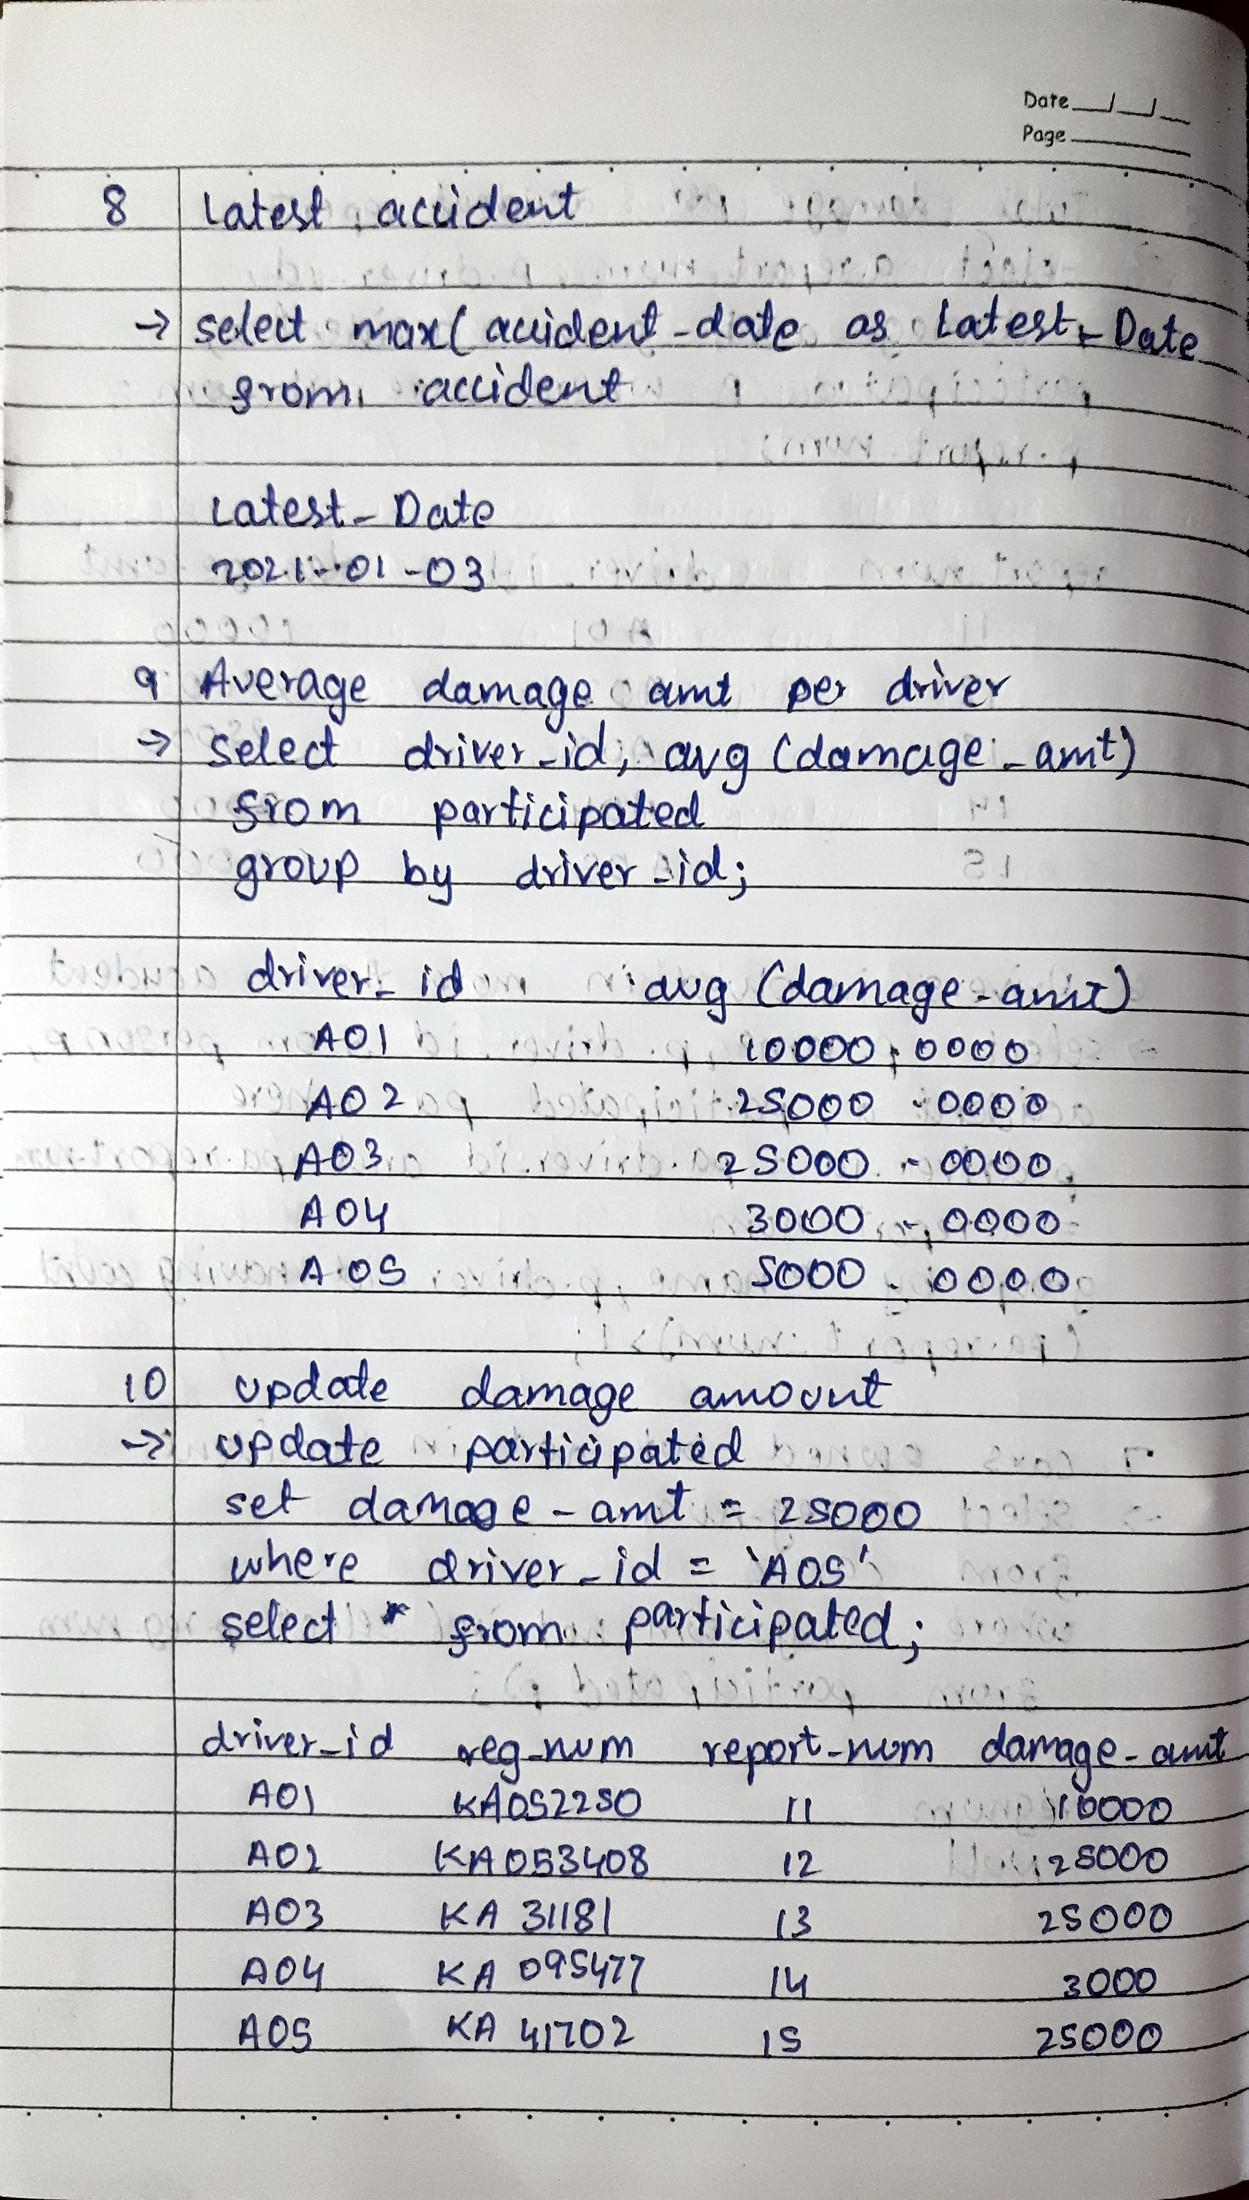 Date
Page
8 Latest accident
→ select max( accident_date as Latest_Date
from accident
Latest_Date
2021-01-03
9 Average damage amt per driver
→ select driver_id, avg (damage_amt)
from participated
group by driver_id;
driver_id avg (damage_amt)
A01 10000.0000
A02 25000.0000
A03 25000.0000
A04 3000.0000
A05 5000.0000
10 update damage amount
→ update participated
set damage_amt = 25000
where driver_id = 'A05'
select * from participated;
driver_id reg_num report_num damage_amt
A01 KA052250 11 10000
A02 KA053408 12 25000
A03 KA 31181 13 25000
A04 KA 095477 14 3000
A05 KA 41702 15 25000